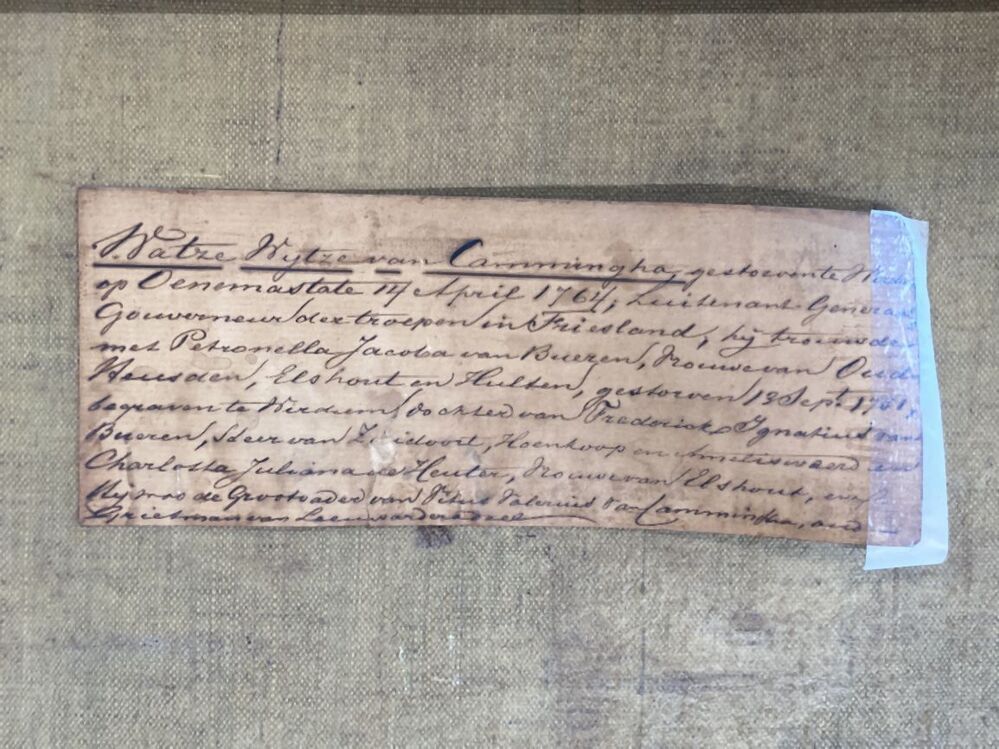 Watze Wijtze van Cammingha, gestorven te
op Oenemastate 14 April 1764, Luitenant Generaal
Gouverneur der troepen in Friesland, hij trouwde
met Petronella Jacoba van Bueren, Vrouwe van Oud
Heusden, Elshout en Hulten, gestorven 13 Sept. 1761,
begraven te Wirdum, dochter van Frederick Ignatius van
Bueren, Heer van Zuidoort, Hoenkoop en Amelisweerd en
Charlotta Juliana de Heuter, Vrouwe van Elshout, enz.
Hij was de Grootvader van Vitus Valerius van Cammingha, oud
Grietman van Leeuwarderadeel